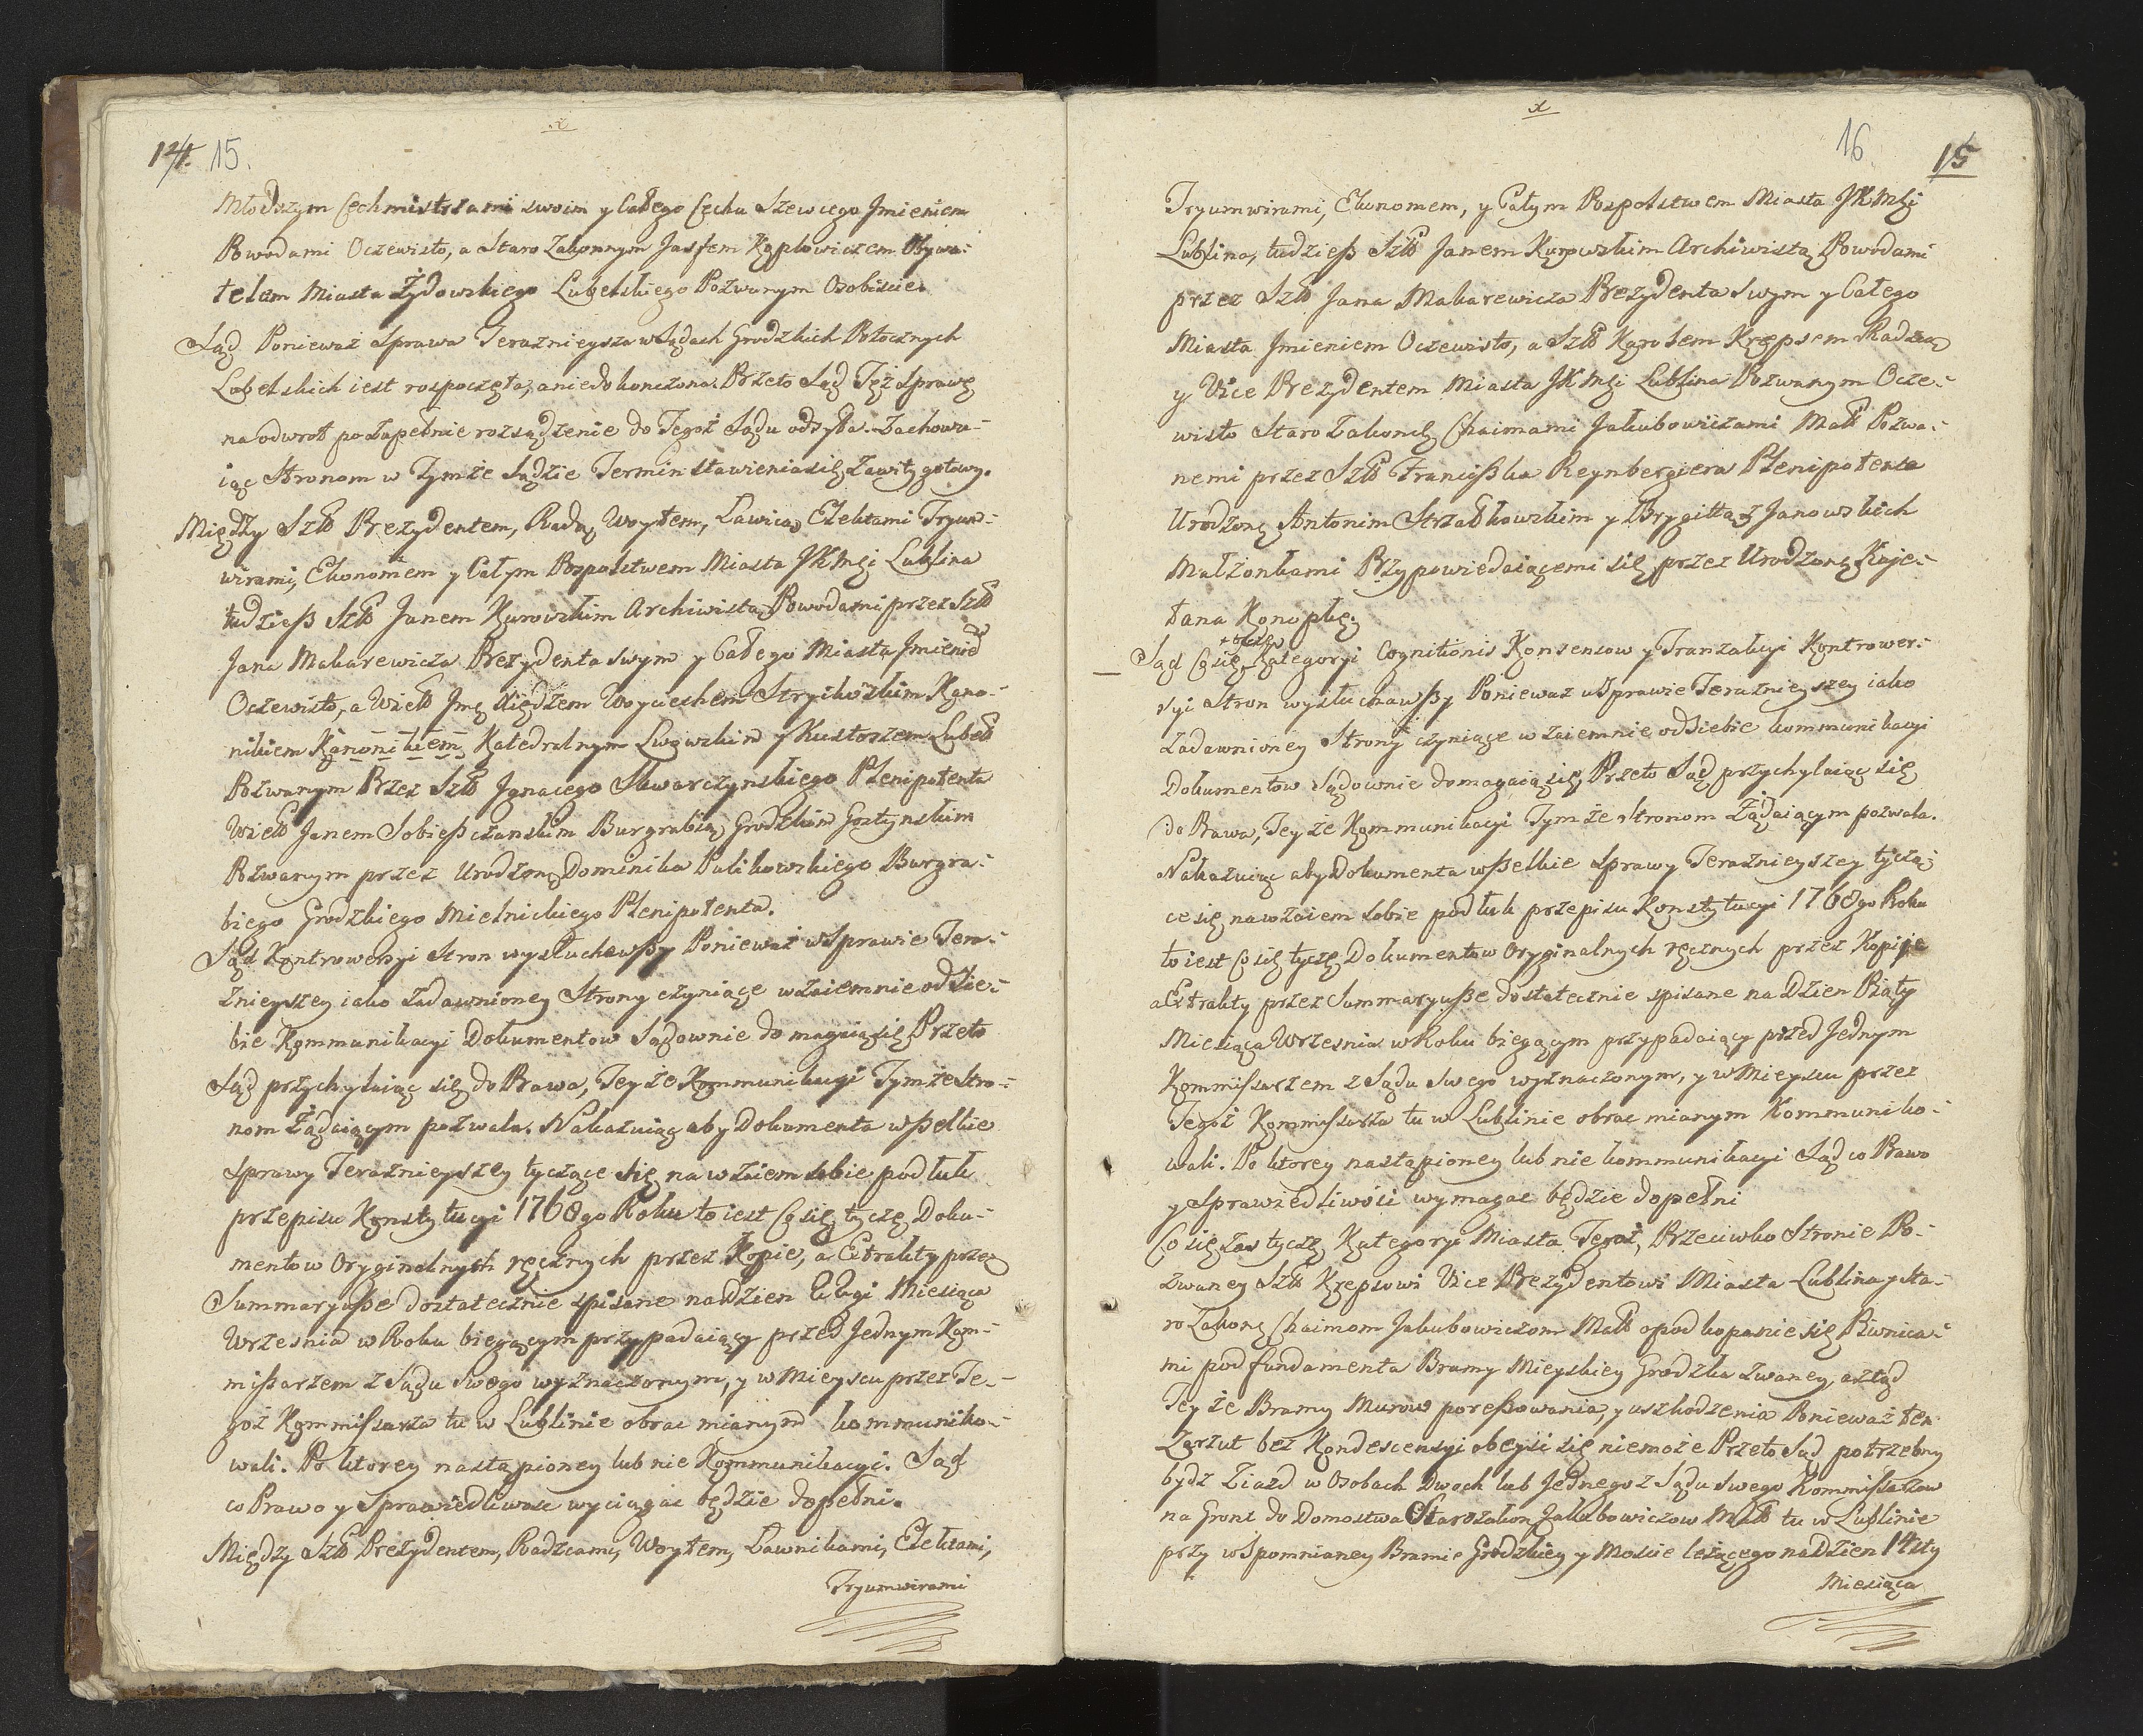 x
14. 15.
Młodszym Cechmistrzami swoim y Całego Cechu Szewcego Jmieniem
Powodami Oczewisto, a Staro Zakonnym Josfem Kaplowiczem Obywa-
telem Miasta Żydowskiego Lubelskiego Pozwanym Osobiscie.
Sąd Ponieważ Sprawa Teraznieysza w Sądach Grodzkich Potocznych
Lubelskich iest rospoczęta, a niedokonczona. Przeto Sąd Tęż Sprawę
na odwrot po zapełnie rozsądzenie do Tegoż Sądu odsyła. Zachowu-
iąc Stronom w Tymże Sądzie Termin stawienia się Zawity gotowy.
Między Szł Prezydentem, Radą, Woytem, Ławicą, Elektami Tryum-
wirami, Ekonomem y Całym Pospolstwem Miasta JKMci Lublina
tudzieß Szł Janem Kurowskim Archiwistą Powodami przez Szł
Jana Makarewicza Prezydenta swym y Całego Miasta Jmienie
Oczewisto, a Wiel Jmę Xiędzem Woyciechem Stryikoskim Kano-
nikiem Kanonikiem Katedralnym Lwowskim y Kustoszem Lubel
Pozwanym Przez Szł Jgnacego Skwarczynskiego Plenipotenta
Wiel Janem Sobießczanskim Burgrabią Grodzkim Gostynskim
Pozwanym przez Urodzonę Dominika Pulikowskiego Burgra-
biego Grodzkiego Mielnickiego Plenipotenta.
Sąd Kontrowersyi Stron wysłuchawßy Ponieważ w Sprawie Tera-
znieyszey iako zadawnioney Strony czyniące wzaiemnie od Sie-
bie Kommunikacyi Dokumentow Sądownie domagaią się, Przeto
Sąd przychylaiąc się do Prawa, Teyże Kommunikacyi Tymże Stro-
nom Żądaiącym pozwala. Nakazuiąc aby Dokumenta wßelkie
Sprawy Teraznieyszey tyczące się nawzaiem sobie podług
przepisu Konstytucyi 1768go Roku to iest Co się tyczę Doku-
mentow Oryginalnych ręcznych przez Kopie, a Extrakty przez
Summaryuße dostatecznie spisane na Dzien Miesiąca
Wrzesnia w Roku bieżącym przypadaiący przed Jednym Kom-
mißarzem z Sądu Swego wyznaczonym, y w Mieyscu przez Te-
goż Kommißarza tu w Lublinie obrac mianym kommuniko-
wali. Po ktorey nastąpioney lub nie Kommunikacyi. Sąd
co Prawo y Sprawiedliwosc wyciągac będzie dopełni.
Między Szł Prezydentem, Radzcami, Woytem, Ławnikami, Elektami,
Tryumwirami
x
16 15
Tryumwirami, Ekonomem, y Całym Pospolstwem Miasta JKMci
Lublina, tudzieß Szł Janem Kurowskim Archiwistą Powodami
przez Szł Jana Makarewicza Prezydenta Swym y Całego
Miasta Jmieniem Oczewisto, a Szł Karolem Krepsem Radzcą
y Vice Prezydentem Miasta JKMci Lublina Pozwanym Ocze-
wisto Staro Zakonę Chaimami Jakubowiczami Małł Pozwa-
nemi przez Szł Francißka Reynbergiera Plenipotenta
Urodzonę Antonim Strzałkowskim y Brygittą z Janowskich
Małżonkami Przypowiedaiącemi się przez Urodzonę Kaje-
tana Konopkę.
Sąd Co się Kategoryi Cognitionis Konsensow y Tranzakcyi Kontrower-
syi Stron wysłuchawßy Ponieważ w Sprawie Teraznieyszey iako
Zadawnioney Strony czyniące wzaiemnie od Siebie kommunikacyi
Dokumentow Sądownie domagaią się, Przeto Sąd przychylaiąc się
do Prawa, Teyże Kommunikacyi Tymże Stronom Żądaiącym pozwala.
Nakazuiąc aby Dokumenta wßelkie Sprawy Teraznieyszey tyczą-
ce się nawzaiem sobie podług przepisu Konstytucyi 1768go Roku
to iest Co się tyczę Dokumentow Oryginalnych ręcznych przez Kopije
a Extrakty przez Summaryuße dostatecznie spisane na Dzien Piąty
Miesiąca Wrzesnia w Roku bieżącym przypadaiący przed Jednym
Kommißarzem z Sądu Swego wyznaczonym, y w Mieyscu przez
Tegoż Kommißarza tu w Lublinie obrac mianym Kommuniko-
wali. Po ktorey nastąpioney lub nie kommunikacyi Sąd co Prawo
y Sprawiedliwości wymagac będzie dopełni
Co się zas tyczę Kategoryi Miasta Tegoż, Przeciwko Stronie Po-
zwaney Szł Krepsowi Vice Prezydentowi Miasta Lublina y Sta-
ro Zakonę Chaimom Jakubowiczom Małł o podkopanie się Piwnica-
mi pod fundamenta Bramy Mieyskiey Grodzka zwaney, a ztąd
Teyże Bramy Murow poreßowania, y uszkodzenia Ponieważ ten
Zarzut bez Kondescensyi obeyść się niemoże Przeto Sąd potrzebny
bydz Ziazd w Osobach Dwoch lub Jednego z Sądu Swego Kommißarzow
na Grunt do Domostwa Starozakon Jakubowiczow Małł tu w Lublinie
przy wspomnianey Bramie Grodzkiey y Moscie leżącego na Dzien 14sty
Miesiąca